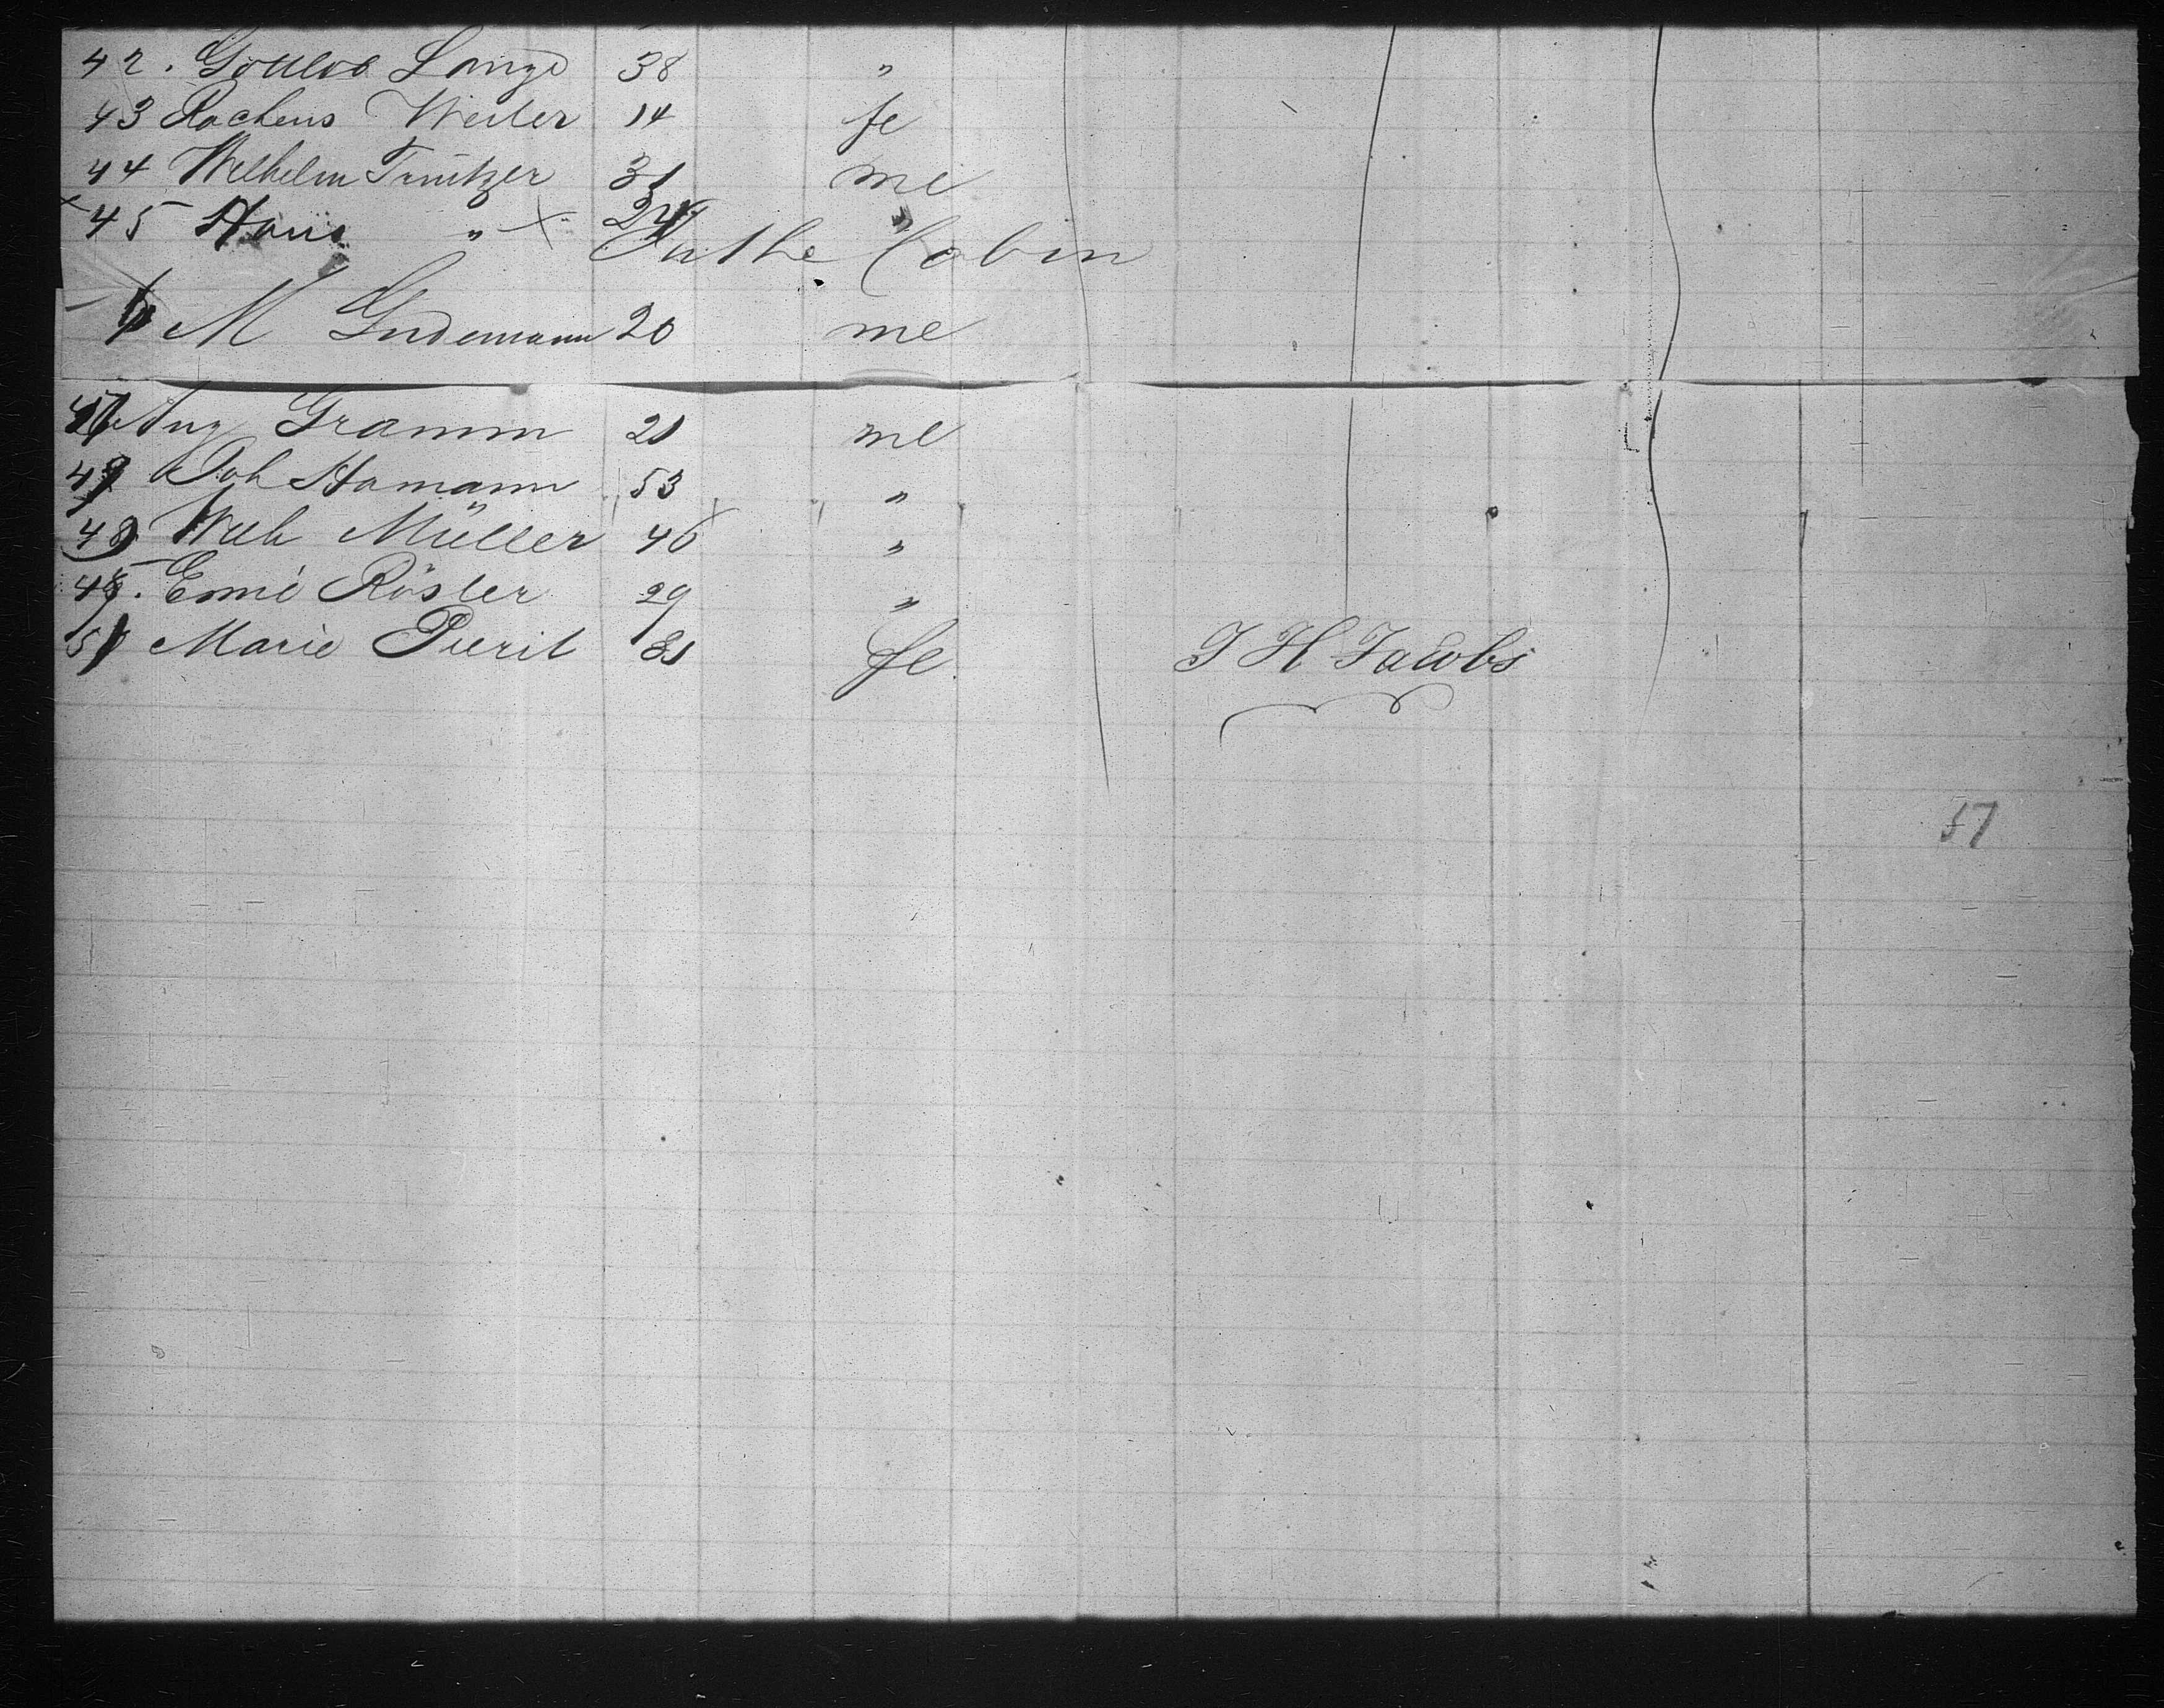 42. Gottlob Lange 38 "
43 Rochens Weiler 14 fe
44 Wilhelm Trützer 31 me
45 Hans " 24 "
In the Cabin
M Lindemann 20 me
Aug Gramm 21 me
Joh Hamann 53 "
48 Wilh Müller 46 "
Rösler 29 "
Marie 31 fe J H Jacobs
57